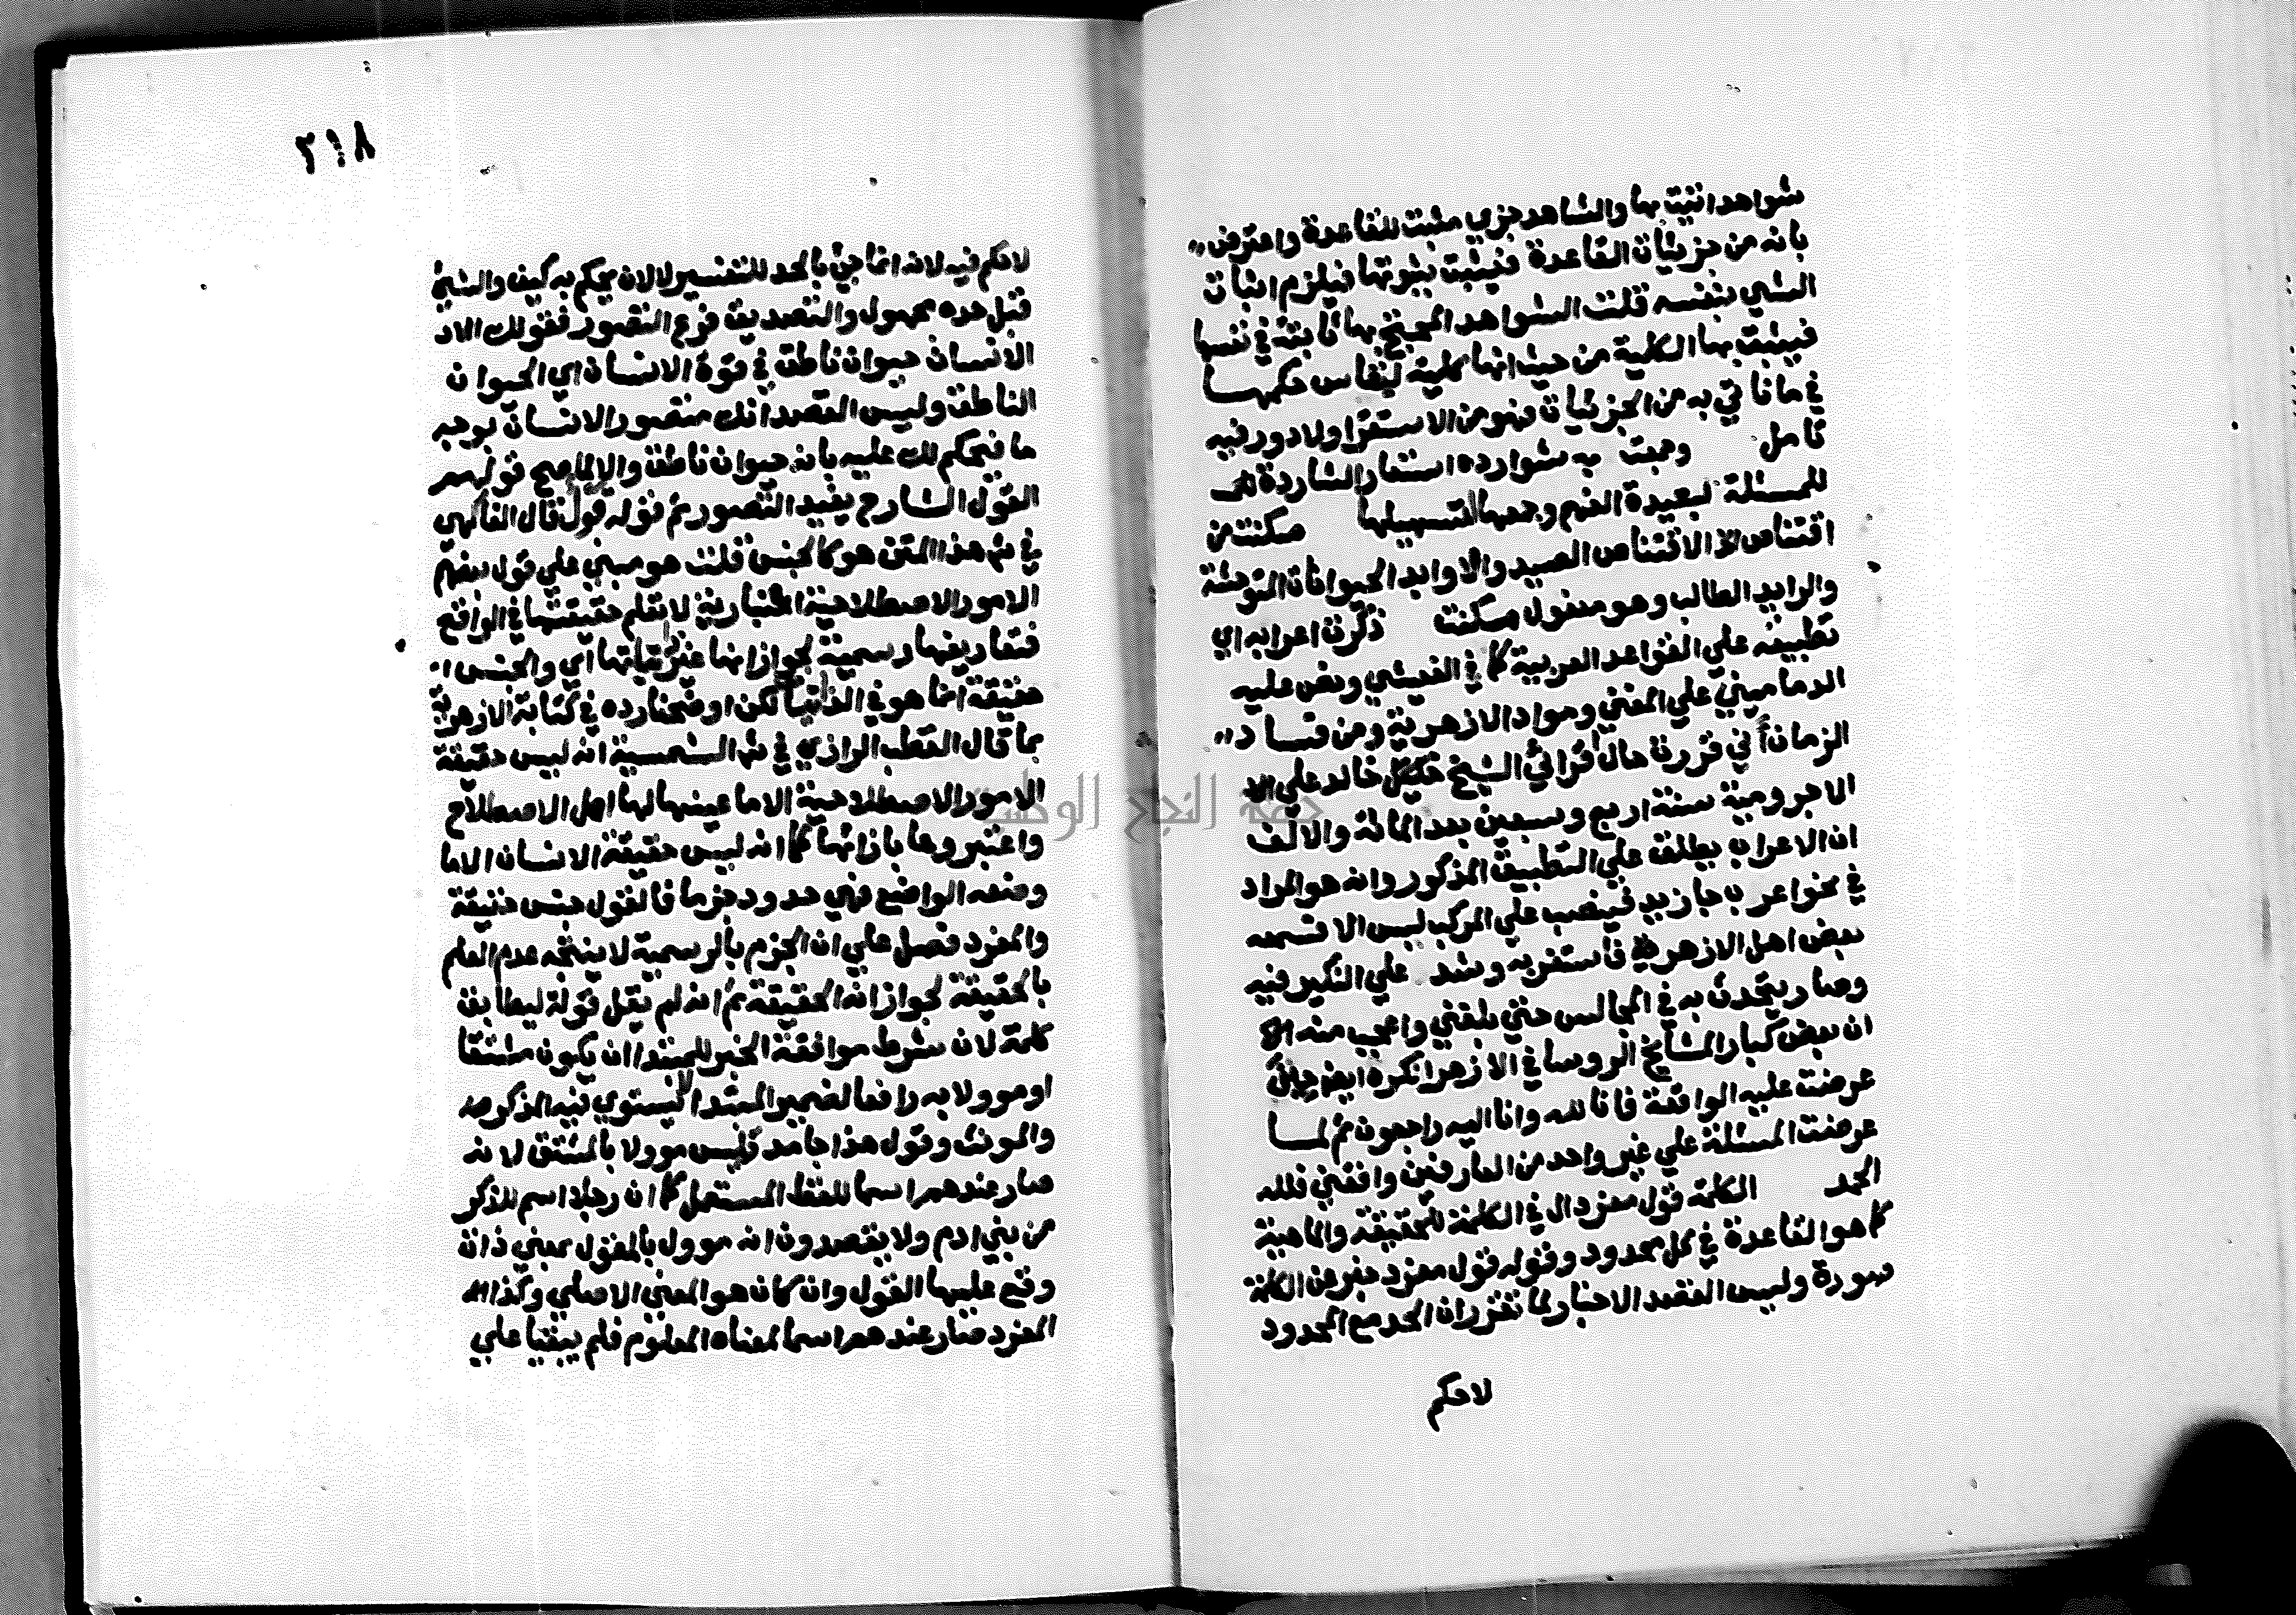 شواهد اتيت بها والشاهد جزي مثبت للقاعدة واعترض
بانه من جزئيات القاعدة فيثبت بثبوتها فيلزم اثبات
الشي بنفسه قلت الشواهد المحتج بها ثابتة في نفسها
فيثبت بها الكلية من حيث انها كلية ليقاس حكمها
في ما ناتي به من الجزئيات فهو من الاستقرا ولا دور فيه
تامل وعجت به شوارده استعار الشاردة
للمسئلة لبعيدة الفهم وجمعها لتسهيلها مكنت من
اقتناص الاقتناص الصيد والاوابد الحيوانات المتوحشة
والرايد الطالب وهو مفعول مكنت ذكرت اعرابه اي
تطبيقه علي القواعد العربية كما في الفيشي ونص عليه
الدماميني علي المغني ومواد الازهرية ومن فساد
الزمان أني قررت حال قرائي الشيخ خالد علي الا
الاجرومية سنة اربع وسبعين بعد المائة والالف
ان الاعراب يطلق علي التطبيق المذكور وانه هو المراد
في نحو اعرب جا زيد فينصب علي المركب ليس الا فسمعه
بعض اهل الازهر فاستغربه وشدد علي النكير فيه
وصار يتحدث به في المجالس حتي بلغني واعجب منه
ان بعض كبار المشايخ الروسا في الازهر انكره ايضا حين
عرضت عليه الواقعة فانا لله وانا اليه راجعون ثم لما
عرضت المسئلة علي غير واحد من العارفين وافقني فلله
الحمد الكلمة قول مفرد ال في الكلمة للحقيقة والماهية
كما هو القاعدة في كل محدود وقوله قول مفرد خبر عن الكلمة
صورة وليس القصد الاخبار لما تقرر ان الحد مع المحدود
لا حكم
٢١٨
لا حكم فيه لانه انما جئ بالحد للتفسير لا لان يحكم به كيف والشيئ
قبل حده مجهول والتصديق فرع التصور فقولك الاد
الانسان حيوان ناطق في قوة الانسان اي الحيوان
الناطق وليس القصد انك متصور الانسان بوجه
ما فيحكم لك عليه بانه حيوان ناطق والا لما صح قولهم
القول الشارح يفيد التصور ثم قوله قول قال الفاكهي
في شرح هذا المتن هو كالجنس قلت هو مبني علي قول بعضهم
الامور الاصطلاحية اعتبارية لا يعلم حقيقتها في الواقع
فتعاريفها رسمية لجواز انها غير ذاتياتها اي والجنس
حقيقة انما هو في الذاتيات لكن اوضحنا رده في كتابة الازهرية
بما قال القطب الرازي في شرح الشمسية انه ليس حقيقة
الامور الاصطلاحية الا ما عينها لها اهل الاصطلاح
واعتبروها بازائها كما انه ليس حقيقة الانسان الا ما
وضعه الواضع فهي حدود جزما فالقول جنس حقيقة
والمفرد فصل علي ان الجزم بالرسمية لا ينتجه عدم العلم
بالحقيقة لجواز انه الحقيقة ثم انه لم يقل قولة ليطابق
كلمة لان شرط موافقة الخبر للمبتدا ان يكون مشتقا
او موولا به رافعا لضمير المبتدا لا يستوي فيه المذكر
والمونث وقول هذا جامد وليس موولا بالمشتق لانه
صار عندهم اسما للفظ المستعمل كما ان رجلا اسم للذكر
من بني ادم ولا يقصدون انه موول بالمقول بمعني ذات
وقع عليها القول وان كان هو المعني الاصلي وكذا
المفرد صار عندهم اسما لمعناه المعلوم فلم يبقيا علي
جمعة النجاح الوطنية